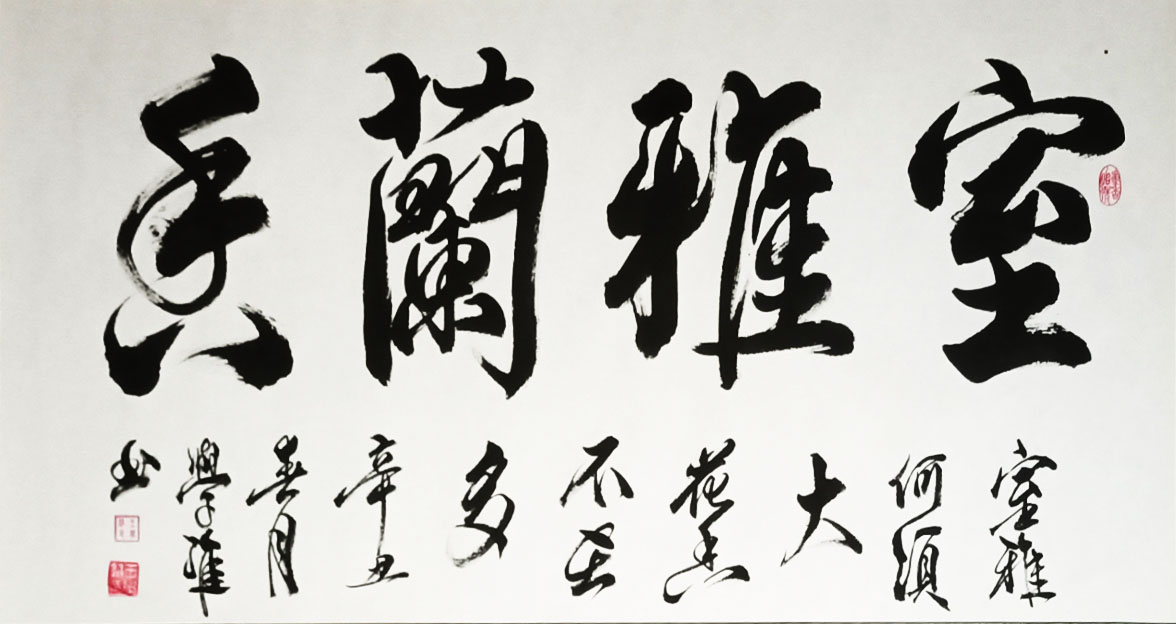 室雅蘭香
室雅
何須
大
花香
不在
多
辛丑
春月
學維
書